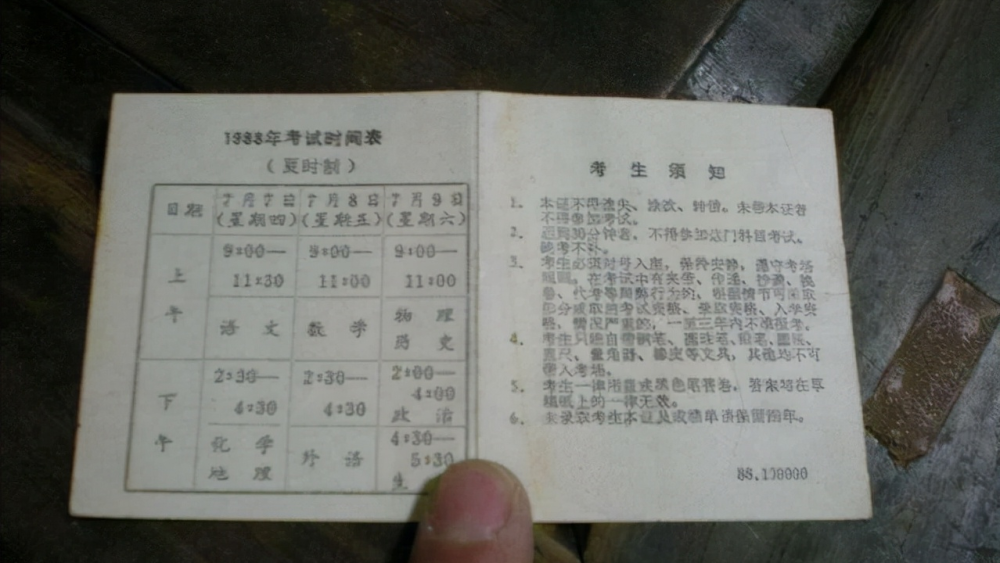 1988年考试时间表
（夏时制）
日期
7月7日
（星期四）
7月8日
（星期五）
7月9日
（星期六）
上午
9:00—
11:30
语文
9:00—
11:00
数学
9:00—
11:00
物理
历史
下午
2:30—
4:30
化学
地理
2:30—
4:30
外语
2:00—
4:00
政治
4:30—
5:30
生
考生须知
1. 本证不得遗失、涂改、转借。未带本证者
不得参加考试。
2. 迟到30分钟者，不得参加该门科目考试。
缺考不补。
3. 考生必须对号入座，保持安静，遵守考场
在考试中有夹带、传递、抄袭、换
卷、代考等舞弊行为的，根据情节可采取
部分或取消考试资格、录取资格、入学资
格，情况严重的，一至三年内不准报考。
4. 考生只准自带钢笔、圆珠笔、铅笔、圆规、
直尺、量角器、橡皮等文具，其他均不可
带入考场。
5. 考生一律用蓝或黑色笔答卷，答案写在草
稿纸上的一律无效。
6. 未录取考生本证及成绩单请保留两年。
88.100000